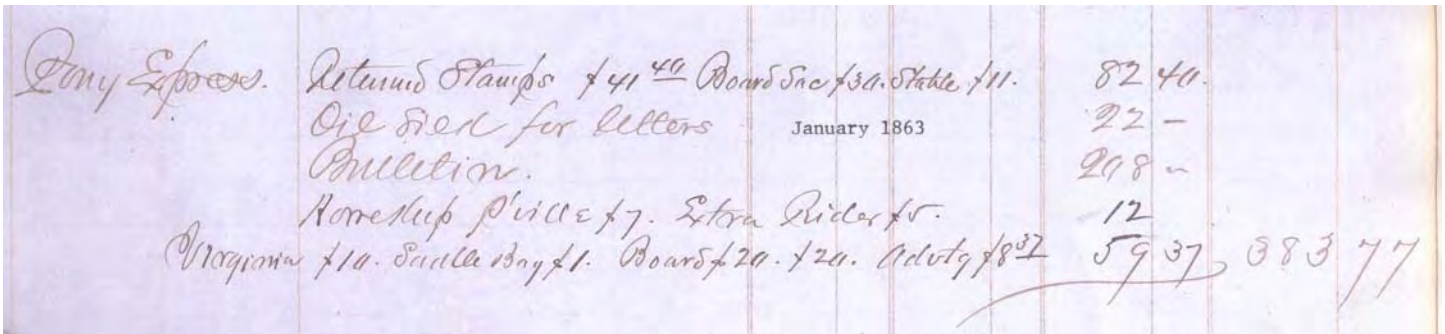 Pony Express. Returned Stamps $41 40 Board Sac $30. Stable $11. 82 40.
Oil Silk for letters January 1863 22 –
Bulletin. 208 –
P'ville $7. Extra Rider $5. 12
Virginia $10. Saddle Bag $1. Board $20. $20. Advtg $8 37 59 37 383 77